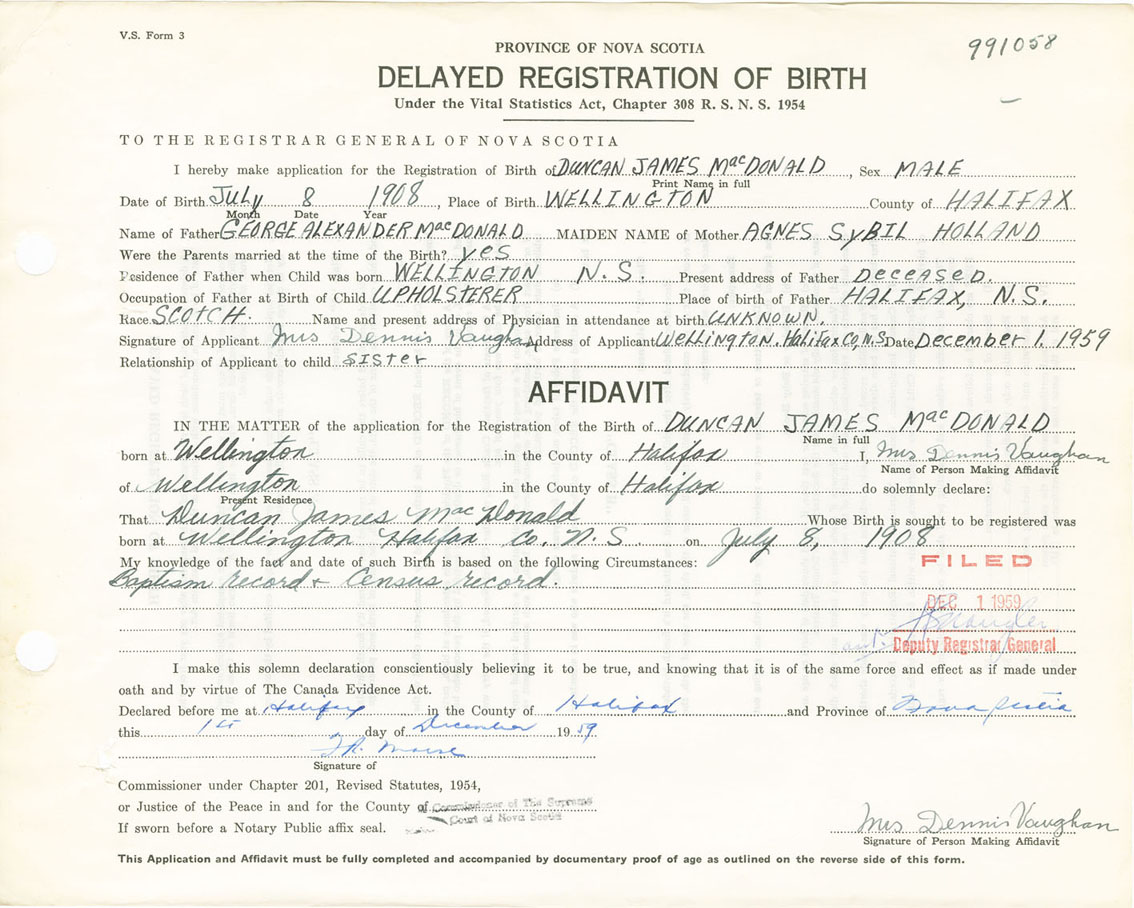 V.S. Form 3
991058
PROVINCE OF NOVA SCOTIA
DELAYED REGISTRATION OF BIRTH
Under the Vital Statistics Act, Chapter 308 R. S. N. S. 1954
TO THE REGISTRAR GENERAL OF NOVA SCOTIA
I hereby make application for the Registration of Birth of DUNCAN JAMES MacDONALD, Sex MALE
Print Name in full
Date of Birth JULY 8 1908, Place of Birth WELLINGTON County of HALIFAX
Month Date Year
Name of Father GEORGE ALEXANDER MacDONALD MAIDEN NAME of Mother AGNES SYBIL HOLLAND
Were the Parents married at the time of the Birth? yes
Residence of Father when Child was born WELLINGTON N.S. Present address of Father DECEASED.
Occupation of Father at Birth of Child UPHOLSTERER Place of birth of Father HALIFAX, N.S.
Race SCOTCH. Name and present address of Physician in attendance at birth UNKNOWN.
Signature of Applicant Mrs Dennis Vaughan Address of Applicant Wellington. Halifax Co, N.S Date December 1, 1959
Relationship of Applicant to child SISTER
AFFIDAVIT
IN THE MATTER of the application for the Registration of the Birth of DUNCAN JAMES MacDONALD
Name in full
born at Wellington in the County of Halifax I, Mrs Dennis Vaughan
Name of Person Making Affidavit
of Wellington in the County of Halifax do solemnly declare:
Present Residence
That Duncan James MacDonald Whose Birth is sought to be registered was
born at Wellington Halifax Co. N.S on July 8, 1908
My knowledge of the fact and date of such Birth is based on the following Circumstances:
FILED
Baptism record + Census record.
DEC 1 1959
Deputy Registrar General
I make this solemn declaration conscientiously believing it to be true, and knowing that it is of the same force and effect as if made under
oath and by virtue of The Canada Evidence Act.
Declared before me at Halifax in the County of Halifax and Province of Nova Scotia
this 1st day of December 1959
Signature of
Commissioner under Chapter 201, Revised Statutes, 1954,
or Justice of the Peace in and for the County of Commissioner of The Supreme
Court of Nova Scotia
If sworn before a Notary Public affix seal.
Mrs Dennis Vaughan
Signature of Person Making Affidavit
This Application and Affidavit must be fully completed and accompanied by documentary proof of age as outlined on the reverse side of this form.